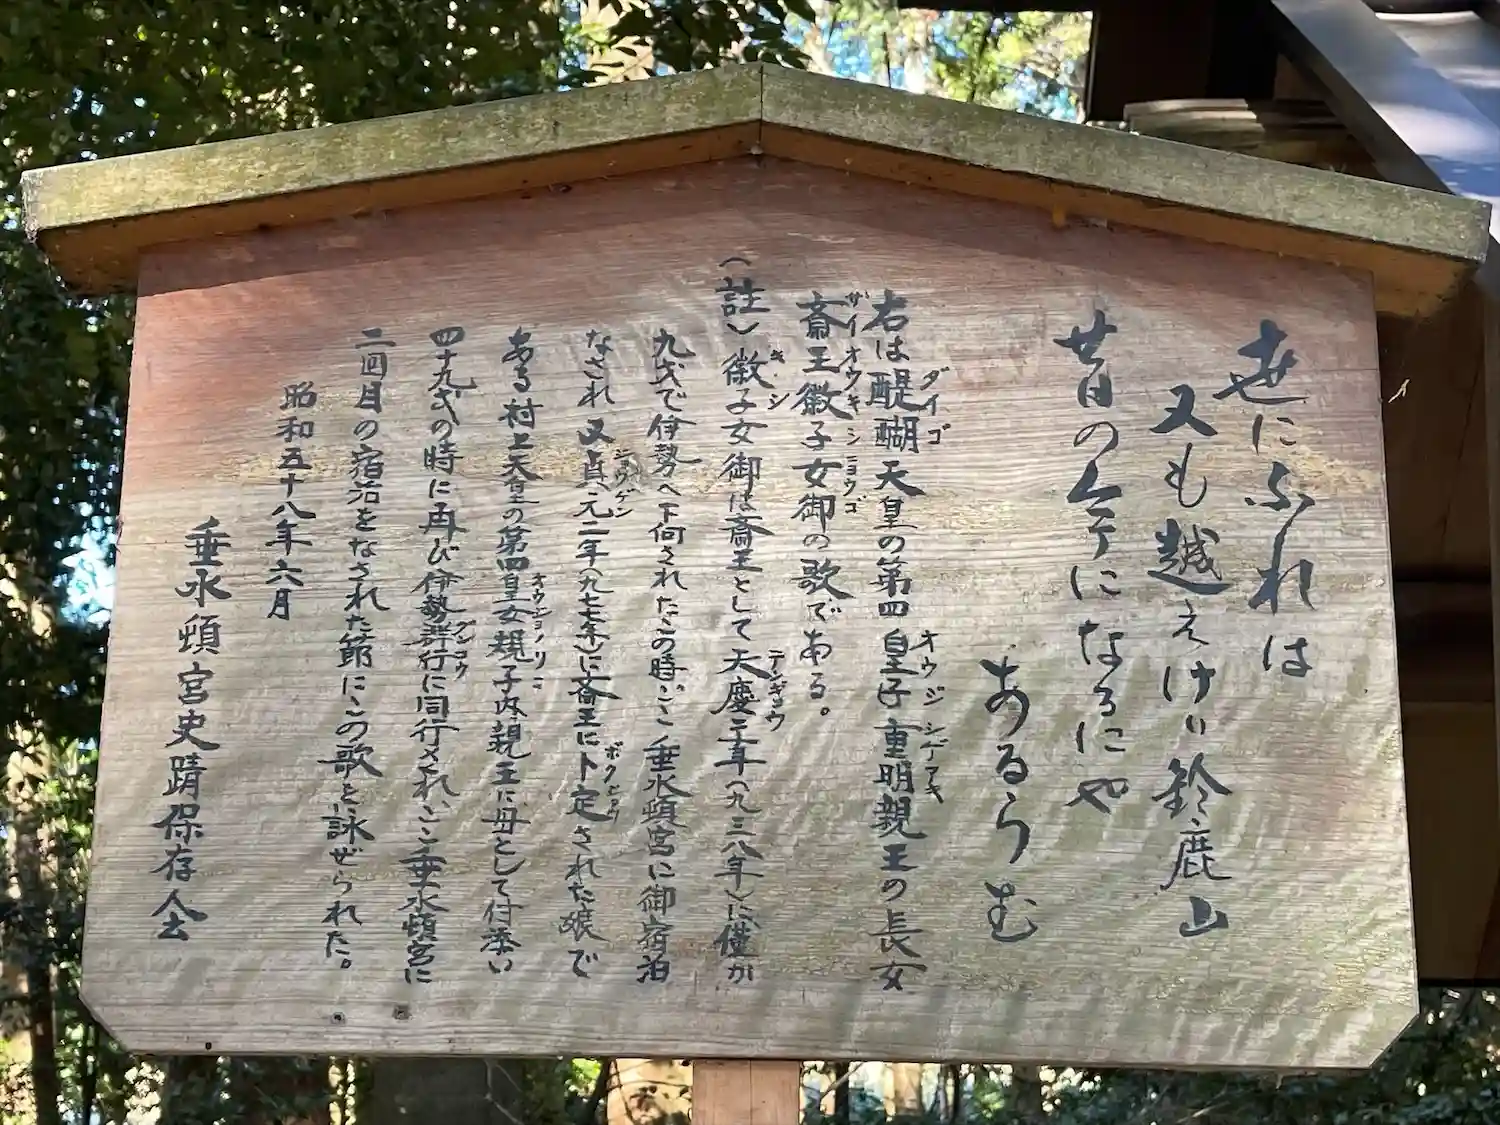 世にふれは
又も越えけり鈴鹿山
昔の今になるにや
あるらむ
右は醍醐天皇の第四皇子重明親王の長女
ダイゴ オウジ シゲアキ
斎王徽子女御の歌である。
サイオウキシニョウゴ
(註)徽子女御は斎王として天慶三年(九三八年)に僅か
キシ テンギョウ
九才で伊勢へ下向されたこの時、ここ垂水頓宮に御宿泊
なされ又貞元二年(九七七年)に斎王に卜定された娘で
ジョウゲン ボクジョウ
ある村上天皇の第四皇女規子内親王に母として付添い
オウジョノリこ
四十九才の時に再び伊勢群行に同行され、ここ垂水頓宮に
グンコウ
二回目の宿泊をなされた節にこの歌を詠ぜられた。
昭和五十八年六月
垂水頓宮史蹟保存会